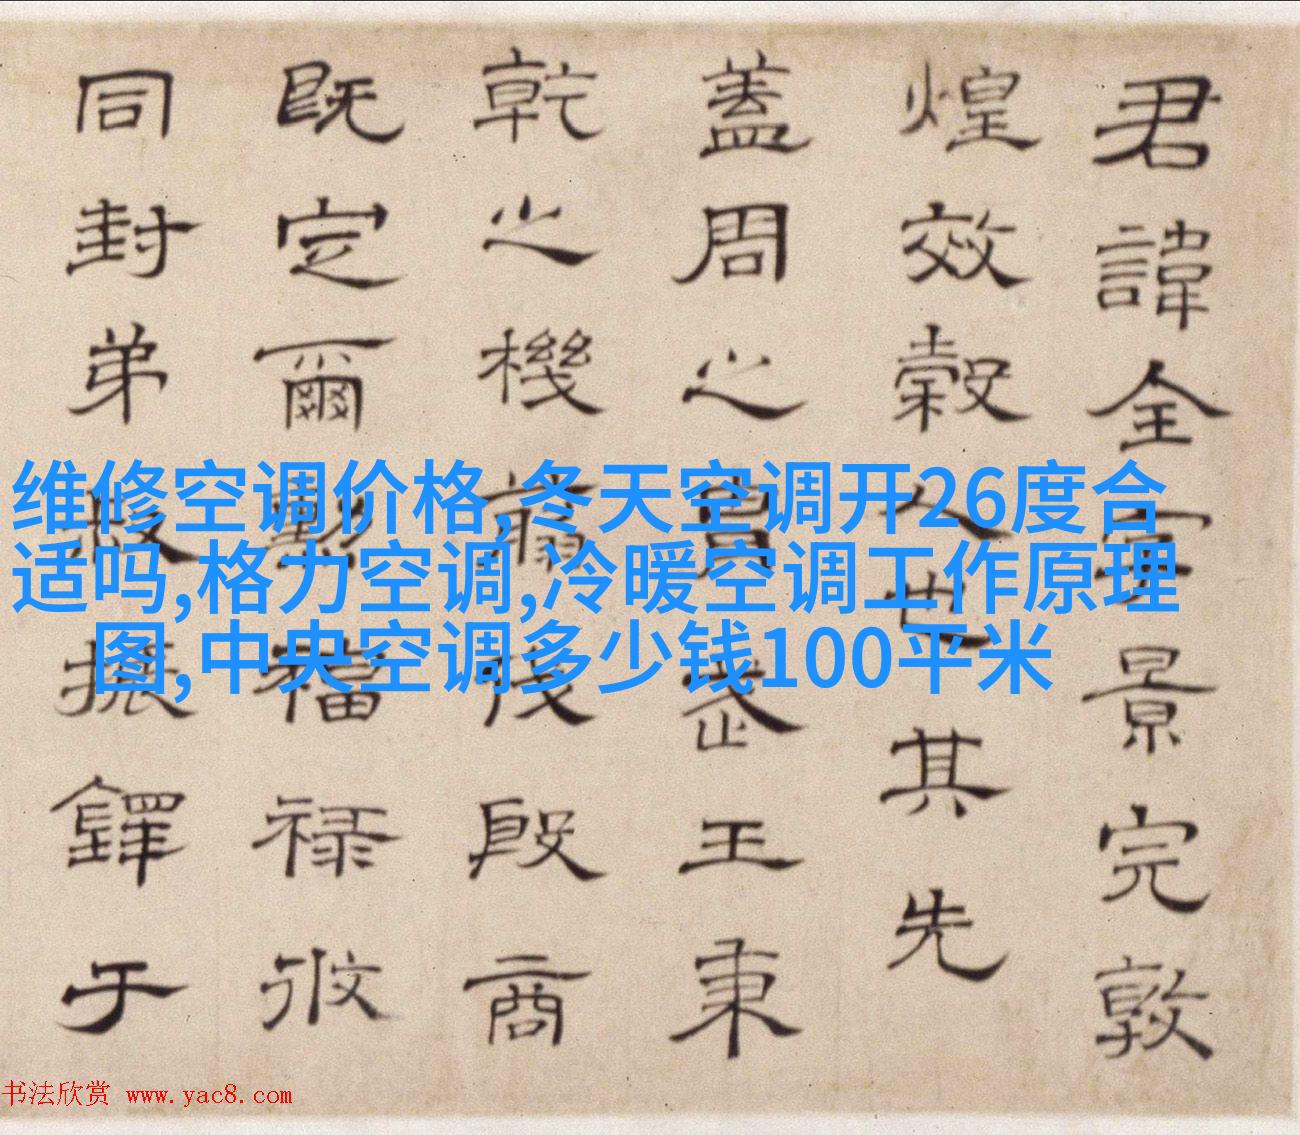 君諱全字景完敦
煌效穀人也其先
蓋周之胄武王秉
乾之機翦伐殷商
既定爾勲福禄攸
同封弟叔振鐸于
维修空调价格,冬天空调开26度合
适吗,格力空调,冷暖空调工作原理
图,中央空调多少钱100平米
书法欣赏 www.yac8.com